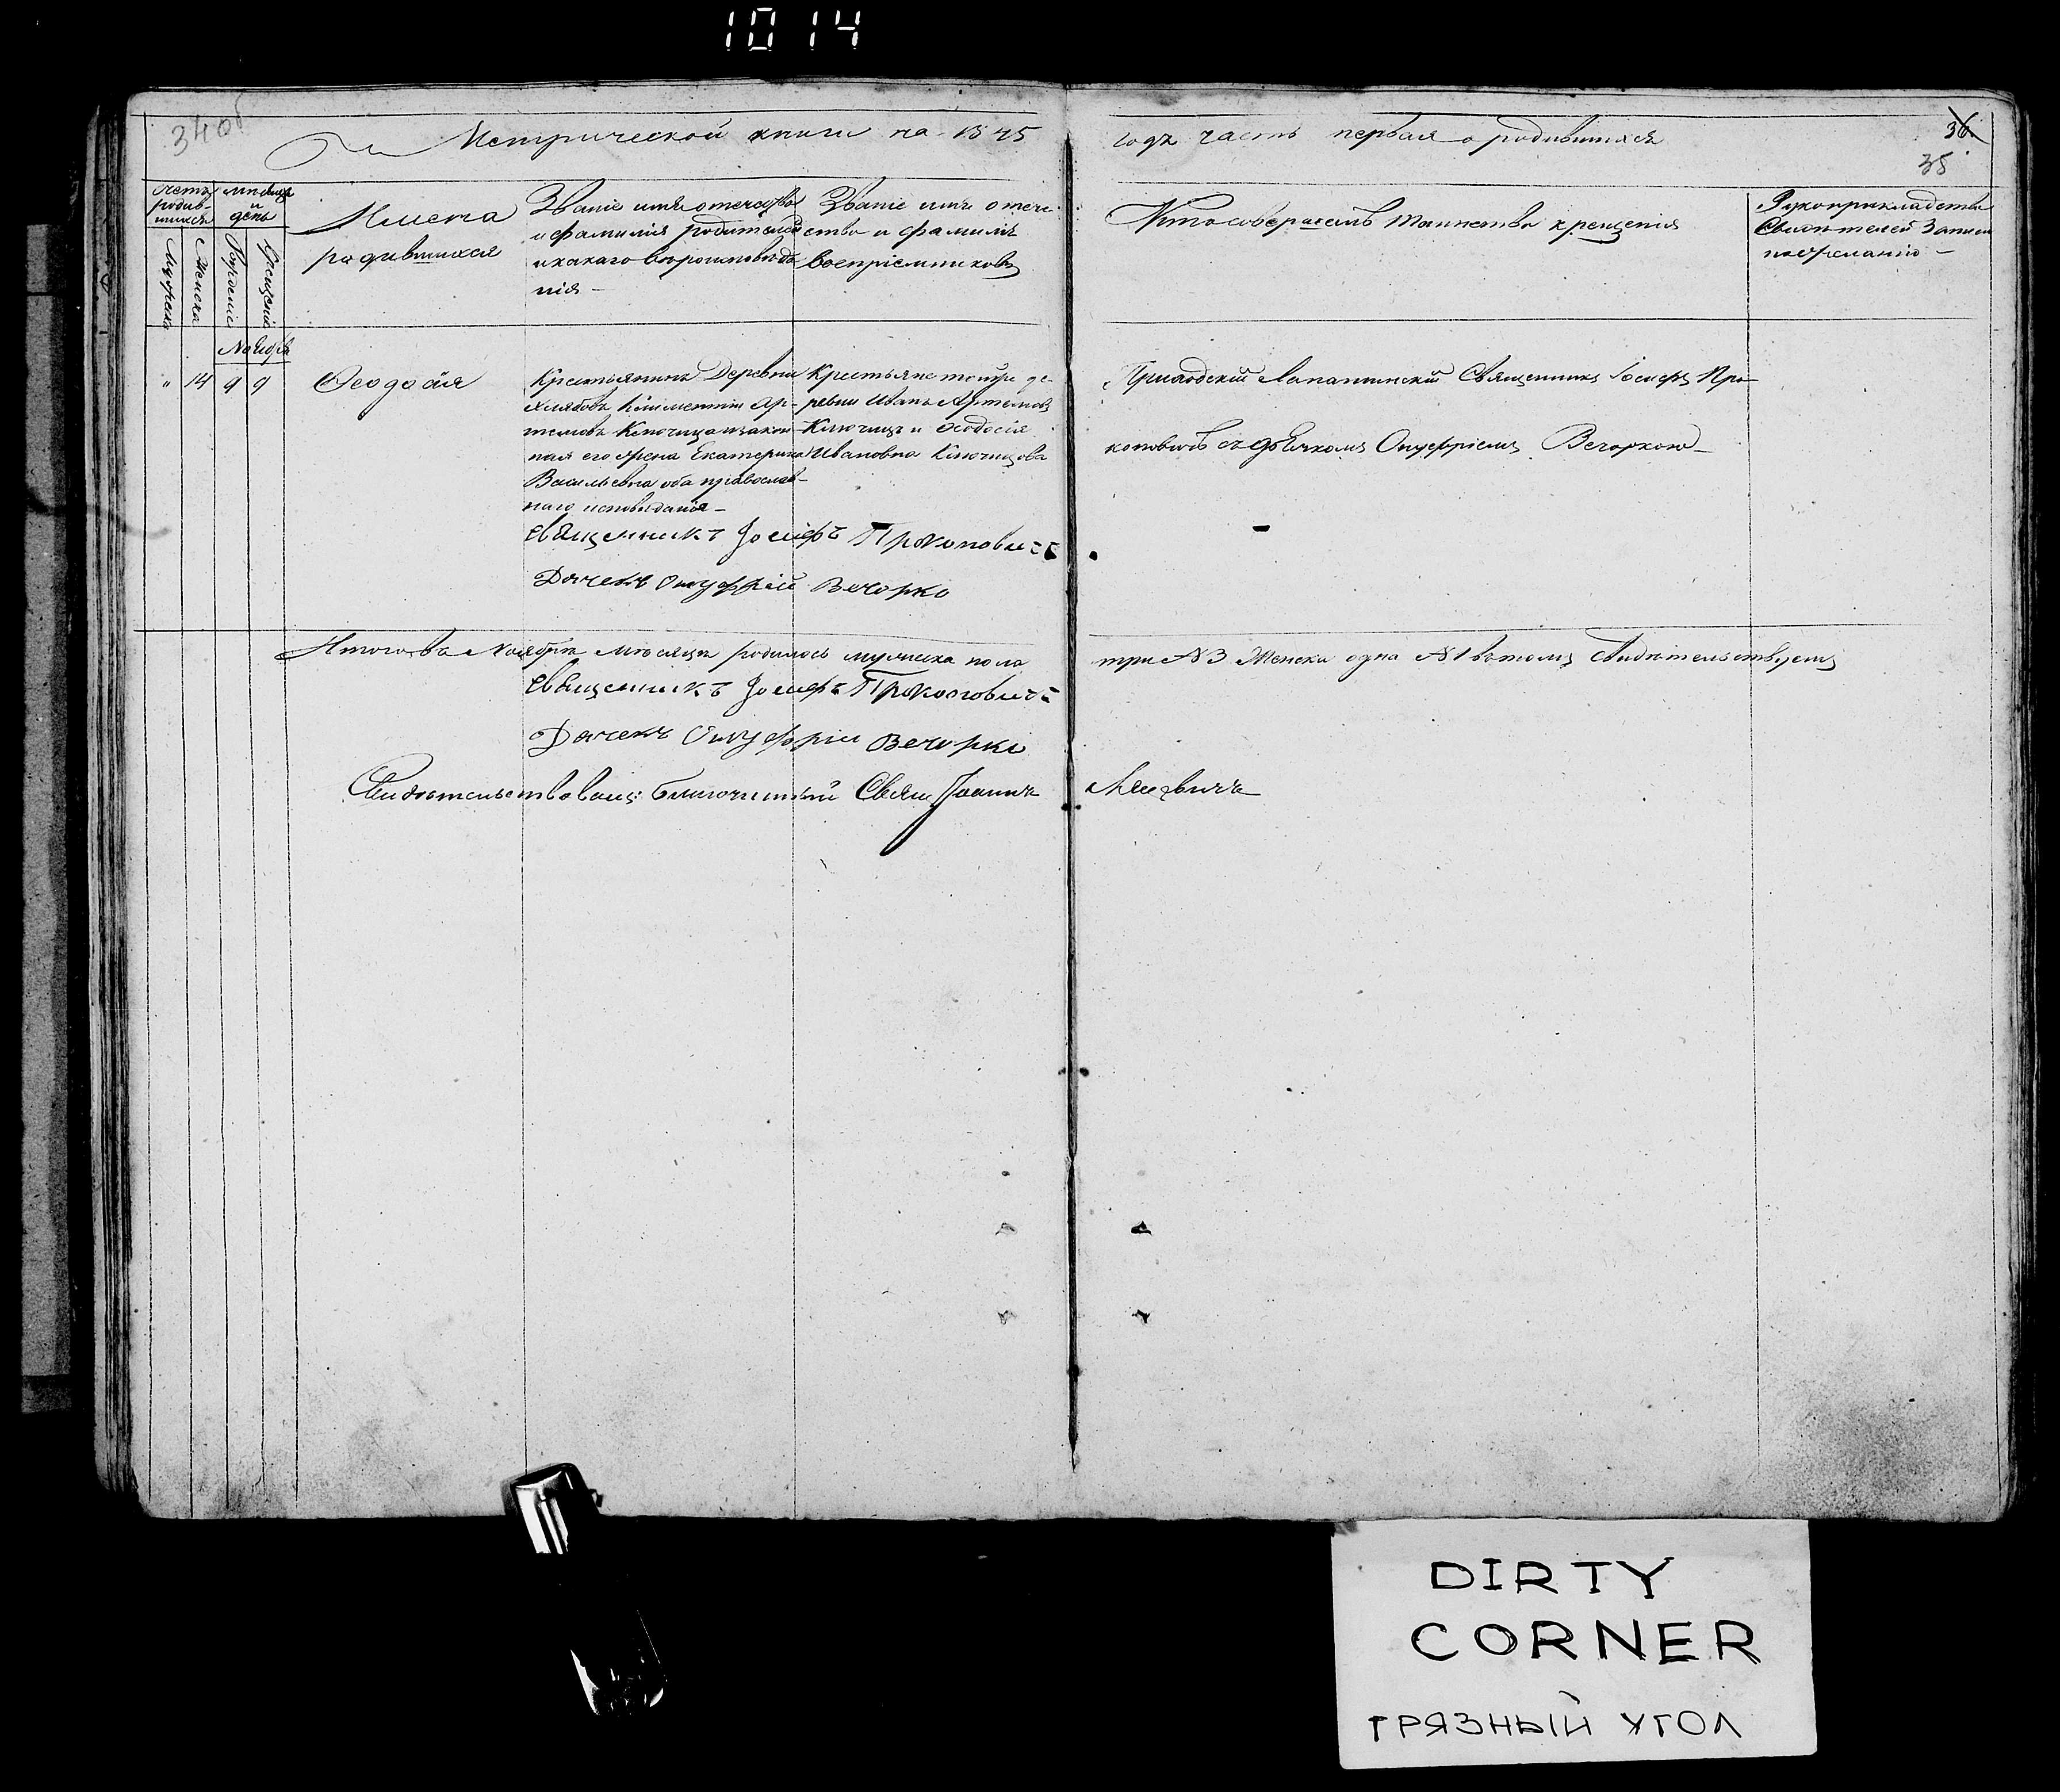 1014
34об
Метрической книги на 1845
годъ часть первая о родившихся
36.
35
Счетъ родив-шихся
мѣсяцъ и день
Мужеска
Женска
Рожденіе
Крещенія
Имена
родившихся
Званіе имя отечество
и фамилія родителей
и какаго вѣроисповѣда
нія –
Званіе имя отече
ство и фамилія
воспріемниковъ
Кто совершалъ таинство крещенія
Рукоприкладство
Свидѣтелей Записи
по желанію –
Ноября
" 14 9 9
Ѳеодосія
Крестьянинъ Деревни
Климентій Ар-
темовъ Ключица и закон
ная его жена Екатерина
Васильевна оба православ-
наго исповѣданія –
Крестьяне тойже де
ревни Иванъ Артемовъ
Ключица и Ѳеодосія
Ивановна Ключицова
Приходскій Священникъ Іосифъ Про
коповичъ съ дьячкомъ Онуфріемъ Вечоркою –
Священникъ Іосифъ Прокоповичъ
Дячекъ Онуфрій Вечорко
Итого въ Ноябрѣ мѣсяцѣ родилось мужеска пола
три №3 Женска одна №1 въ томъ Свидѣтельствуемъ
Священникъ Іосифъ Прокоповичъ
Дячекъ Онуфрій Вечорко
Свидѣтельствовалъ: Благочинный Свящ Іоаннъ
DIRTY
CORNER
ГРЯЗНЫЙ УГОЛ